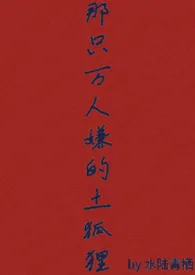 那只万人嫌的土狐狸
by 水陆青栖